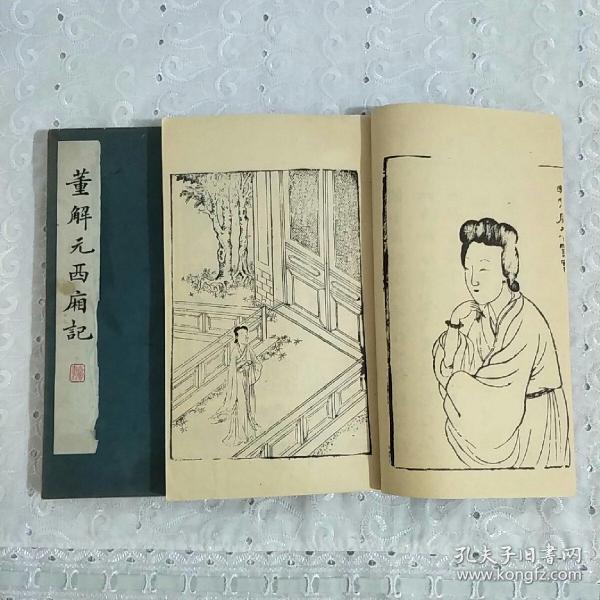 董解元西廂記
孔夫子旧书网
www.kongfz.com